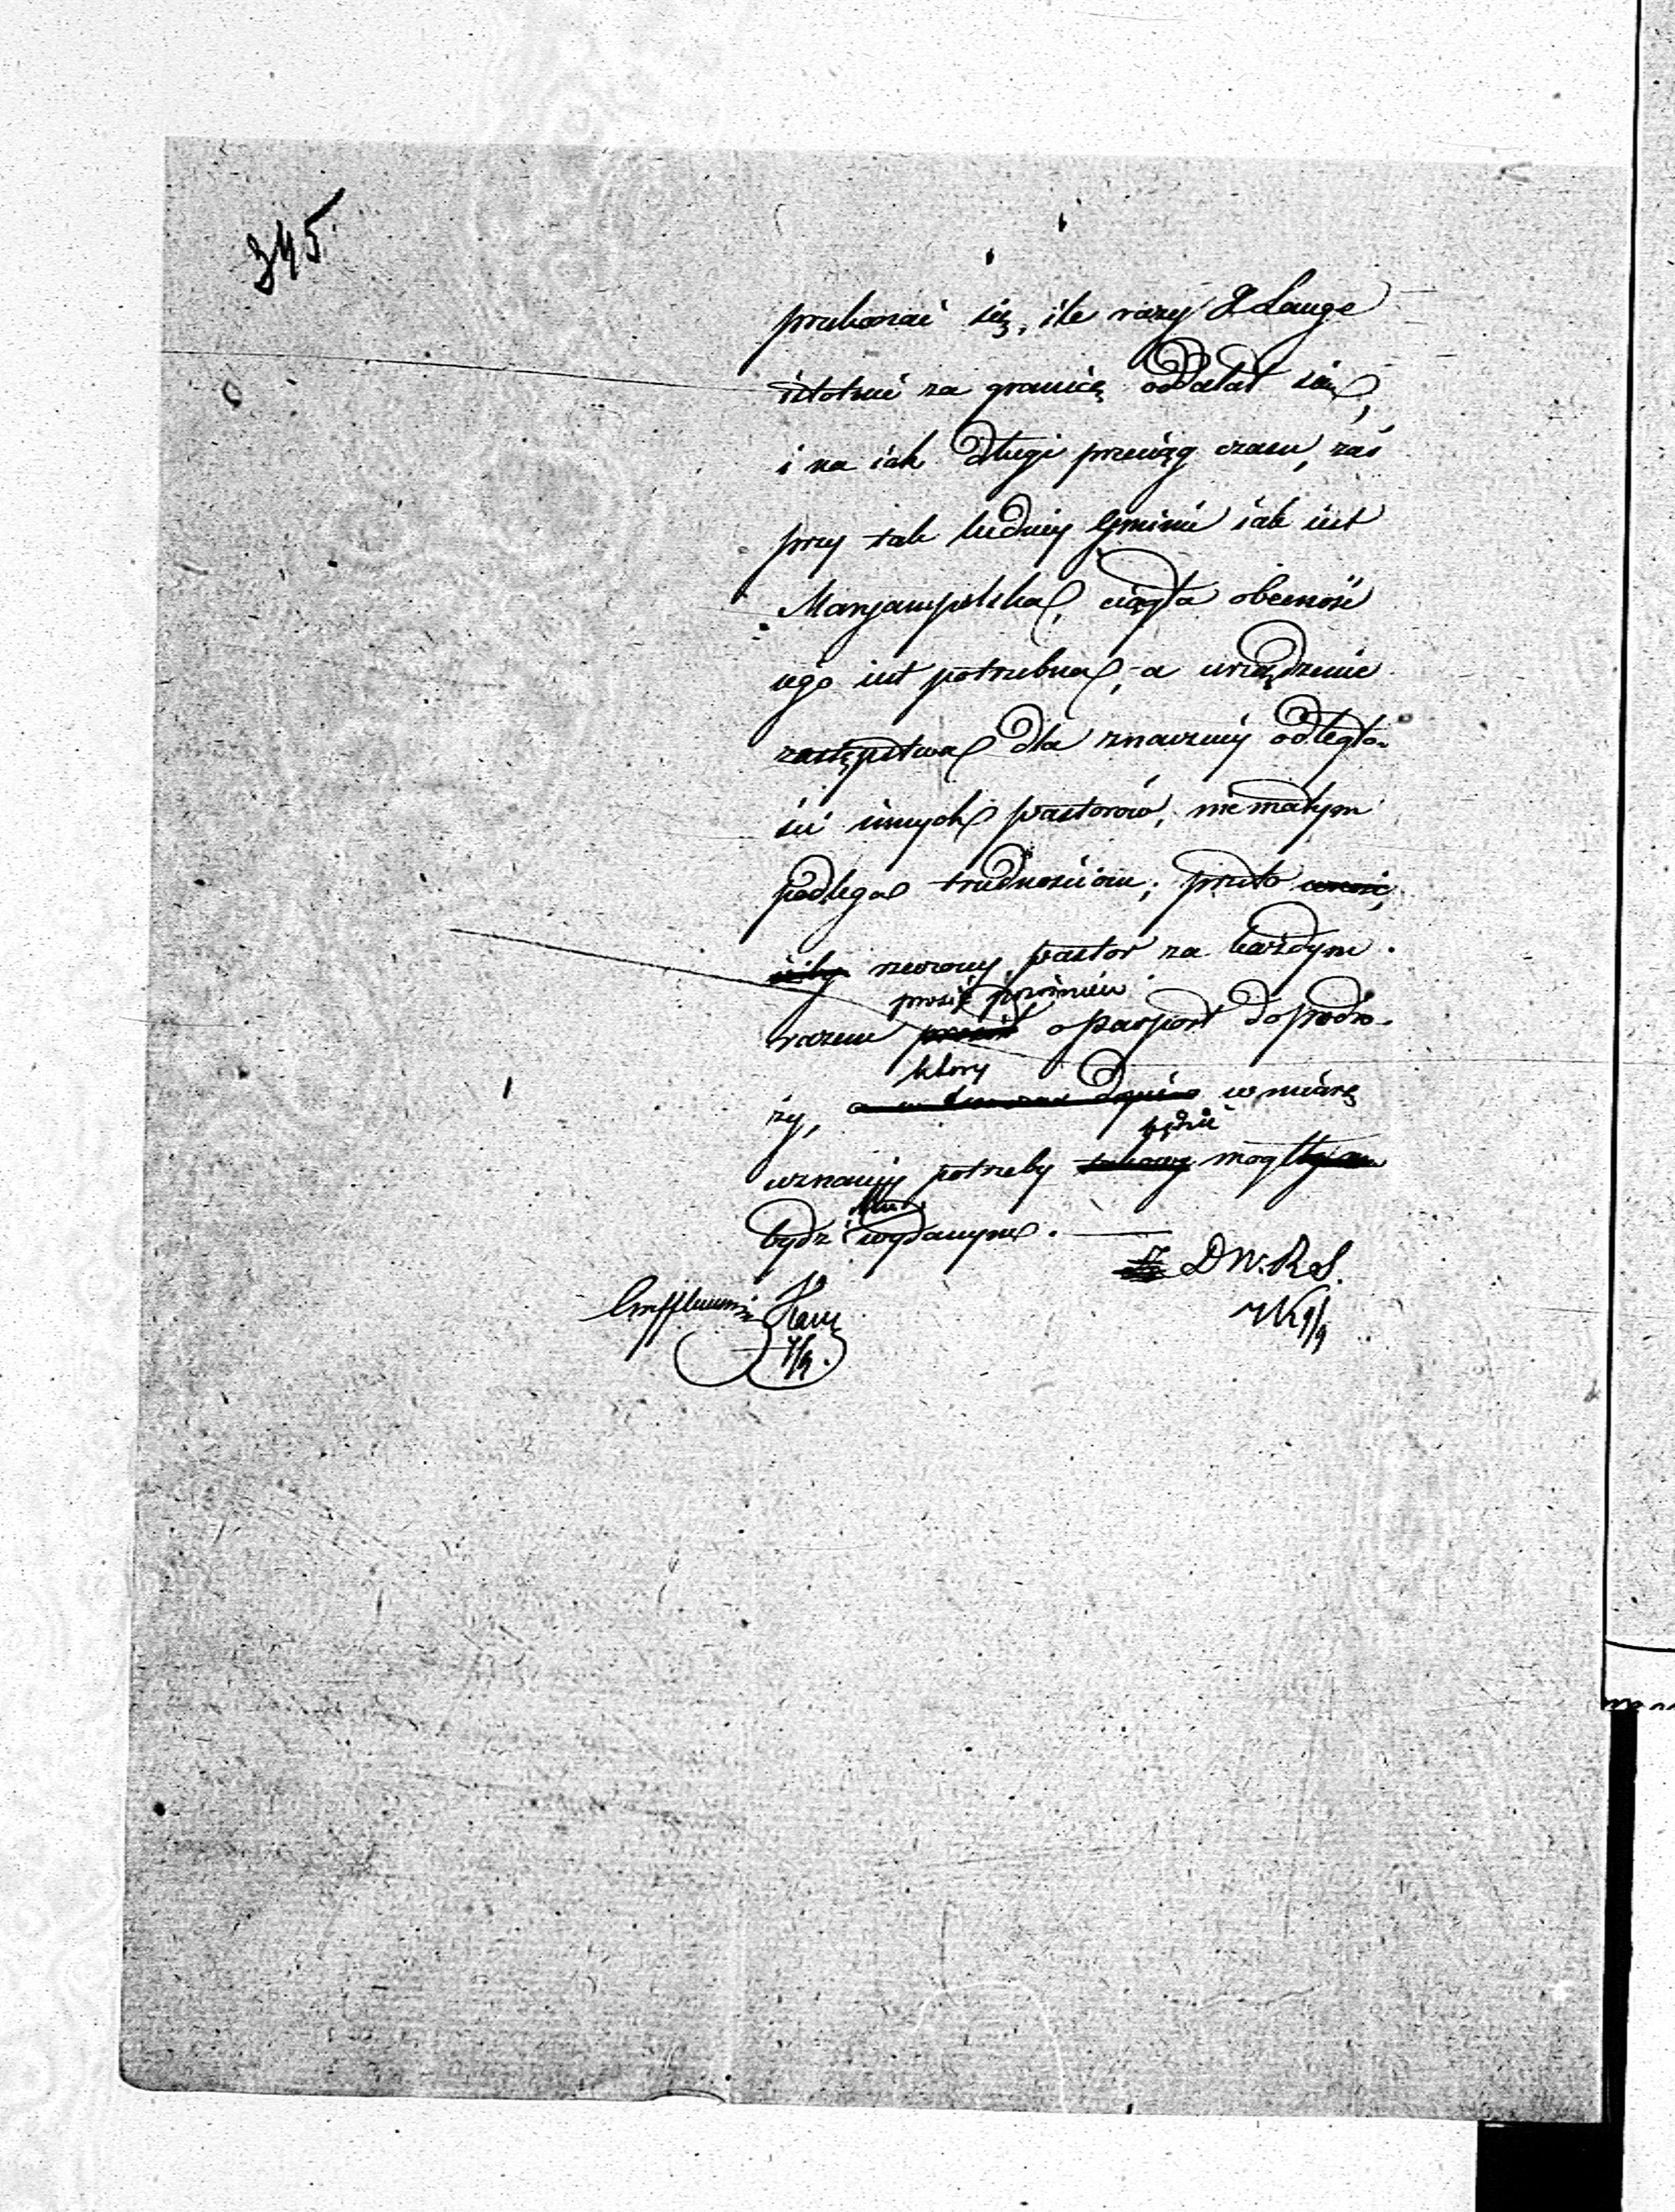 345
przekonać się, ile razy X Lange
istotnie za granicę oddalał się,
i na iak długi przeciąg czasu, zaś
przy tak ludney Gminie iak iest
Maryampolska, ciągła obecność
iego iest potrzebna, a urządzenie
zastępstwa dla znaczney odległo-
ści innych pastorów, niemałym
podlega trudnościom; przeto
rzeczony pastor za każdym
razem prosić powinien o paszport do podró-
ży, który w miarę
uznaney potrzeby będzie mógł
bydź wydanym.
DW. R S.